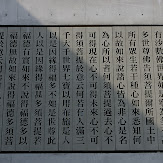 多世尊佛告須菩提爾所國土中
所有眾生若干種心如來悉知何
以故如來說諸心皆為非心是名
為心所以者何須菩提過去心不
可得現在心不可得未來心不可
得須菩提於意云何若有人滿三
千大千世界七寶以用布施是人
以是因緣得福多不如是世尊此
人以是因緣得福甚多須菩提若
福德有實如來不說得福德多以
福德無故如來說得福德多須菩